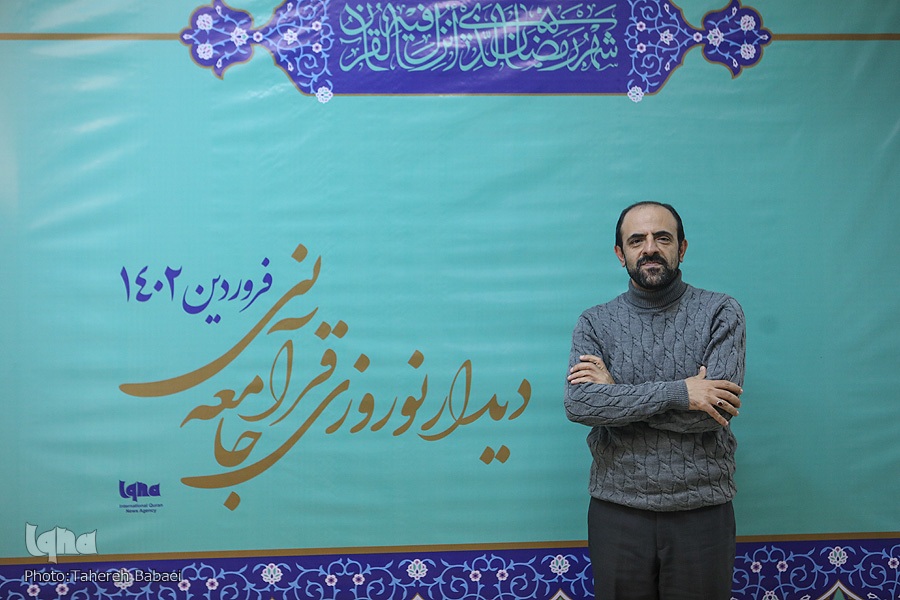 شهر رمضان الذی انزل فیه القرآن
فروردین ۱۴۰۲
دیدار نوروزی
جامعه قرآنی
iqna
International Quran
News Agency
iqna
Photo: Tahereh Babaei